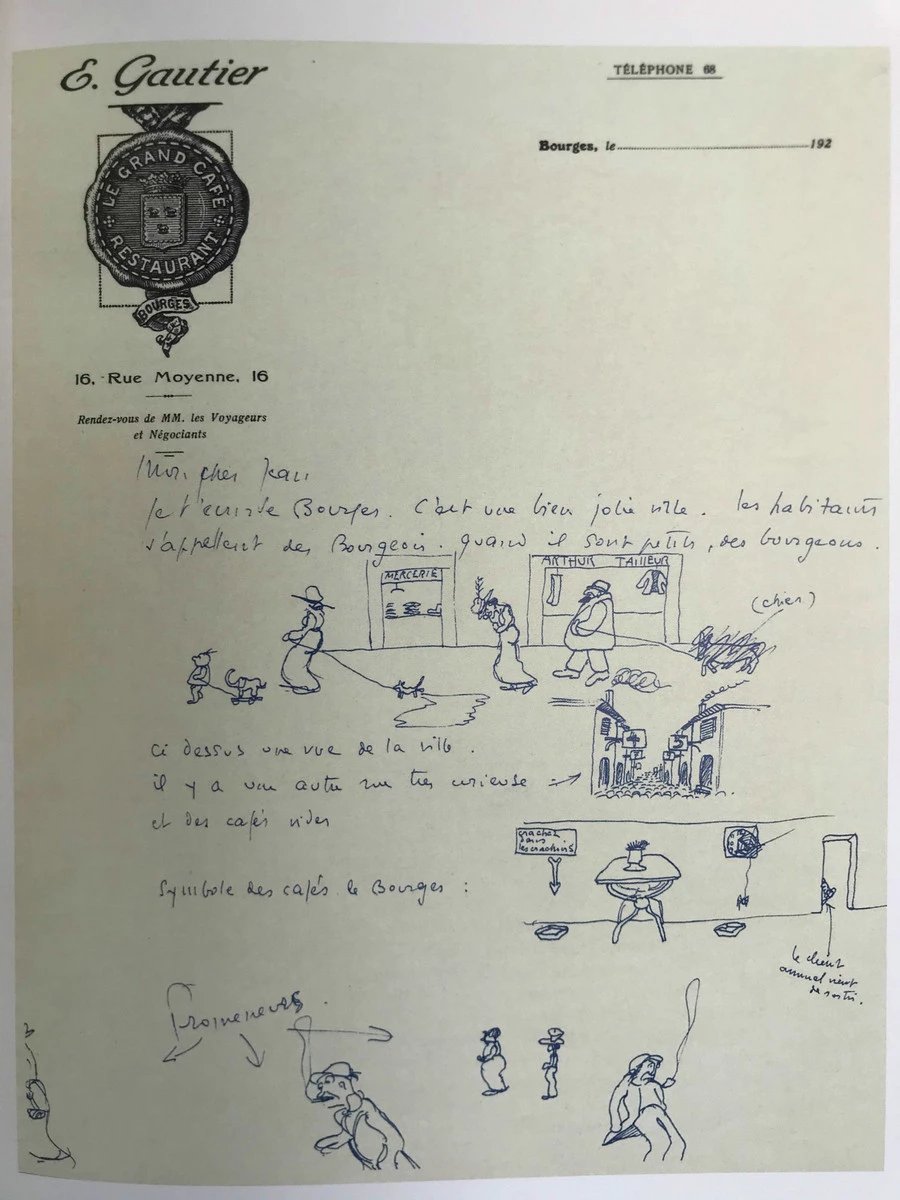 E. Gautier
TÉLÉPHONE 68
Bourges, le 192
LE GRAND CAFÉ
RESTAURANT
BOURGES
16, Rue Moyenne, 16
Rendez-vous de MM. les Voyageurs
et Négociants
Mon cher Jean
Je t'écris de Bourges. C'est une bien jolie ville. les habitants
s'appellent des Bourgeois. quand il sont petits, des bourgeons.
MERCERIE
ARTHUR TAILLEUR
(chien)
ci dessus une vue de la ville.
il y a une autre rue très curieuse
et des cafés vides
crachez
dans
les crachoirs
Symbole des cafés de Bourges :
le client
annuel vient
de sortir.
Promeneurs.